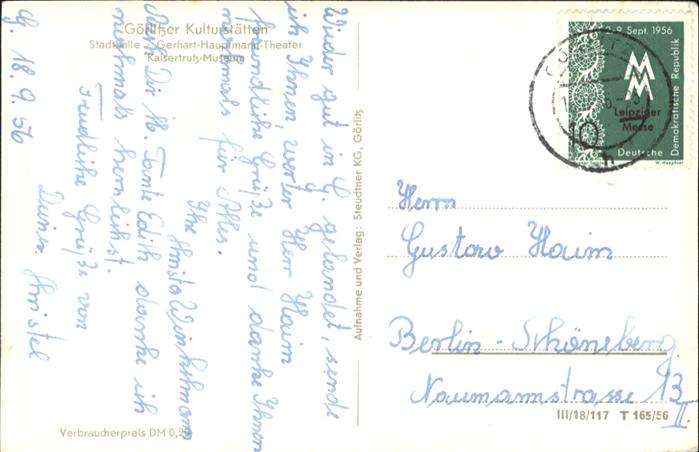 Görlitzer Kulturstätten
Stadthalle - Gerhart-Hauptmann-Theater
Kaisertrutz-Museum
G. 18.9.56
Wieder gut in G. gelandet, sende
ich Ihnen, werter Herr Haim
freundliche Grüße und danke Ihnen
nochmals für Alles.
Ihre Christa
Auch Dir lb. Tante Edith danke ich
nochmals herzlichst.
Freudliche Grüße von
Deiner Christel
Verbraucherpreis DM 0,20
Aufnahme und Verlag: Steudtner KG, Görlitz
2.-9. Sept. 1956
MM
Leipziger
Messe
Deutsche Demokratische Republik
Herrn
Gustav Haim
Berlin-Schöneberg
Naumannstrasse 13
II.
III/18/117 T 165/56